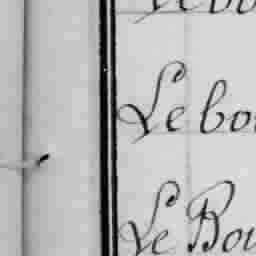 Le bou
Le Bou